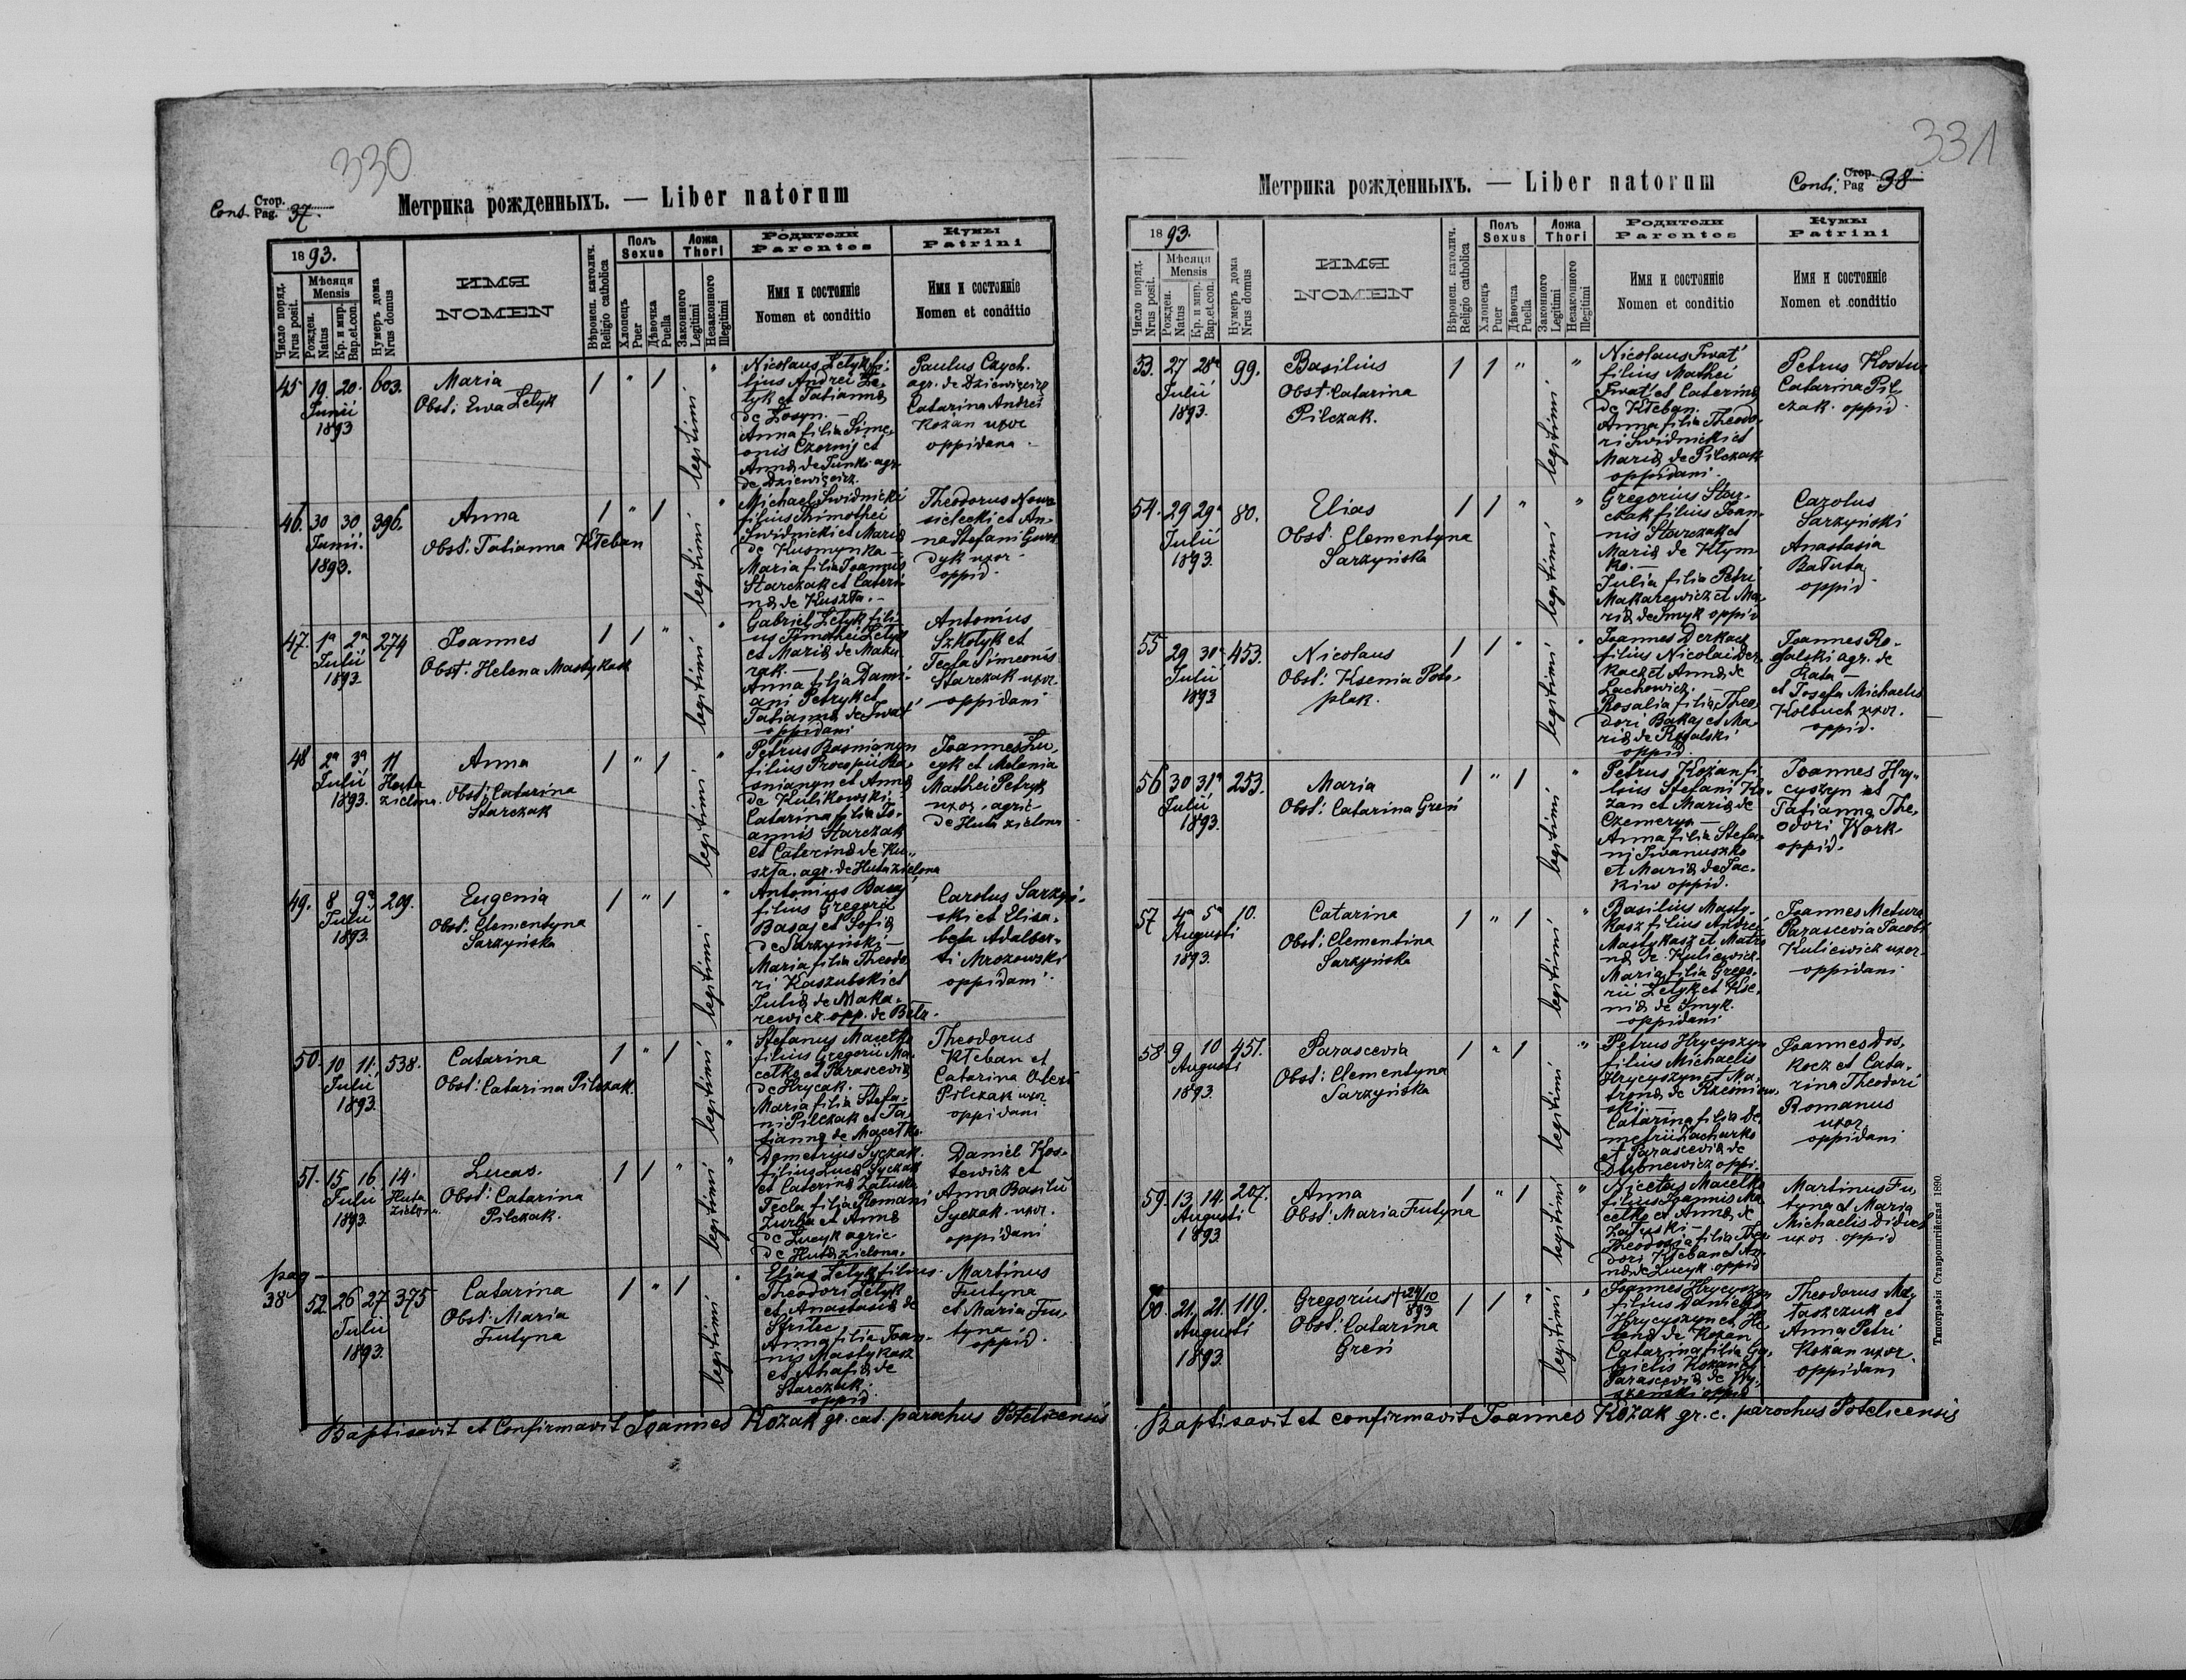 330
Cons. Стор. Pag. 37.
Метрика рожденныхъ. — Liber natorum
1893.
Число поряд. Nrus posit.
Мѣсяця Mensis
Рожден. Natus
Кр. и мир. Bap.et.con.
Нумеръ дома Nrus domus
ИМЯ
NOMEN
Вѣронсп. католич. Religio catholica
Полъ Sexus
Хлопецъ Puer
Дѣвочка Puella
Ложа Thori
Законного Legitimi
Незаконного Illegitimi
Родители
Parentes
Имя и состоянiе
Nomen et conditio
Кумы
Patrini
Имя и состоянiе
Nomen et conditio
45 19. 20. Junii 1893 603.
Maria
Obst: Ewa Zelyk
1 " 1 legitimi "
Nicolaus Zelyk fi-
lius Andrei Ze-
lyk et Tatianna
de Łosyn. —
Anna filia Sime-
onis Czornij et
Anna de Junko agr.
de Dziewięcierz.
Paulus Czych.
agr. de Dziewięcierz
Catarina Andrei
Kozan uxor
oppidana
46. 30 30 Junii. 1893. 396.
Anna
Obst: Tatianna Kłeban
1 " 1 legitimi "
Michael Swidnicki
filius Thimothei
Swidnicki et Maria
de Kusmynka —
Maria filia Joannis
Starczak et Cateri-
na de Kuszta. —
Theodorus Nowo-
sielecki et An-
na Stefani
dyk uxor
oppid.
47. 1a 2a Julii 1893. 274
Joannes
Obst. Helena Mastykasz
1 1 " legitimi "
Gabriel Zelyk fili-
us Timothei Zelyk
et Maria de Maku-
rak. —
Anna filia Dami-
ani Petryk et
Tatianna de Iwat'
oppidani
Antonius
Szkolyk et
Tecla Simeonis
Starczak uxor
oppidani
48 2a 3a Julii 1893. 11 Huta zielona.
Anna
Obst: Catarina
Starczak
1 " 1 legitimi "
Petrus
filius Procopii
et Anna
de Kulikowski —
Catarina filia Jo-
annis Starczak
et Caterina de Ku-
szta. agr. de Huta zielona
Joannes Łu-
cyk et Melania
Mathei Petryk
uxor, agric
de Huta zielona
49. 8 9a Julii 1893. 209.
Eugenia
Obst: Clementyna
Sarzyńska
1 " 1 legitimi "
Antonius Basaj
filius Gregorii
Basaj et Sofia
de Sarzyński —
Maria filia Theodo-
ri Kaszubski et
Julia de Maka-
rewicz. opp. de Bełz.
Carolus Sarzyń-
ski et Elisa-
beta Adalber-
ti Mrozowski
oppidani
50. 10 11. Julii 1893. 538.
Catarina
Obst: Catarina Pilczak.
1 " 1 legitimi "
Stefanus Macełko
filius Gregorii Ma-
cełko et Parascevia
de Hrycak. —
Maria filia Stefa-
ni Pilczak et Ta-
tianna de Macełko.
Theodorus
Kłeban et
Catarina
Pilczak uxor
oppidani
51. 15 16 Julii 1893. 14. Huta zielona.
Lucas.
Obst: Catarina
Pilczak.
1 1 " legitimi "
Demetrius Syczak.
filius Luca Syczak
et Caterina
Tecla filia Romani
Zurba et Anna
de Łucyk agric.
de Huta zielona.
Daniel Kos-
tewicz et
Anna Basilii
Syczak. uxor.
oppidani
pag 38
52. 26 27 Julii 1893. 375
Catarina
Obst: Maria
Futyna
1 " 1 legitimi "
Elias Zelyk filius
Theodori Zelyk
et Anastasia de
Strilec —
Anna filia Joan-
nis Mastykasz
et Ahafia de
Starczak.
oppid.
Martinus
Futyna
et Maria Fu-
tyna
oppid.
Baptisavit et Confirmavit Joannes Kozak gr. cat. parochus Potelicensis
331
Метрика рожденныхъ. — Liber natorum
Conti. Стор. Pag 38
1893.
Число поряд. Nrus posit.
Мѣсяця Mensis
Рожден. Natus
Кр. и мир. Bap.et.con.
Нумеръ дома Nrus domus
ИМЯ
NOMEN
Вѣронсп. католич. Religio catholica
Полъ Sexus
Хлопецъ Puer
Дѣвочка Puella
Ложа Thori
Законного Legitimi
Незаконного Illegitimi
Родители
Parentes
Имя и состоянiе
Nomen et conditio
Кумы
Patrini
Имя и состоянiе
Nomen et conditio
53. 27 28a Julii 1893. 99.
Basilius
Obst: Catarina
Pilczak.
1 1 " legitimi "
Nicolaus Iwat'
filius Mathei
Iwat' et Caterina
de Kłeban.
Anna filia Theodo-
ri Swidnicki et
Maria de Pilczak
oppidani
Petrus
Catarina Pil-
czak. oppid.
54. 29 29a Julii 1893. 80.
Elias
Obst: Clementyna
Sarzyńska
1 1 " legitimi "
Gregorius Star-
czak filius Joan-
nis Starczak et
Maria de Kłym-
ko. —
Julia filia Petri
Makarewicz et Ma-
ria de Smyk oppid
Carolus
Sarzyński
Anastasia
Bałuta
oppid.
55 29 31a Julii 1893 453.
Nicolaus
Obst: Ksenia Poto-
plak.
1 1 " legitimi "
Joannes Derkacz
filius Nicolai Der-
kacz et Anna de
Lachowicz. —
Rosalia filia Theo-
dori Bakaj et Ma-
ria de Rogalski
oppid.
Joannes Ro-
galski agr. de
Rata —
et Josefa Michaelis
Kolbuch uxor.
oppid.
56 30 31a Julii 1893. 253.
Maria
Obst: Catarina Greń
1 " 1 legitimi "
Petrus Kozan fi-
lius Stefani Ko-
zan et Maria de
Czemerys —
Anna filia Stefa-
ni Iwanuszko
et Maria de Jac-
kiw oppid.
Joannes Hry-
cyszyn et
Tatianna The-
odori Work.
oppid.
57 4a 5a Augusti 1893. 10.
Catarina
Obst: Clementina
Sarzyńska
1 " 1 legitimi "
Basilius Masty-
kasz filius Andrei
Mastykasz et Matro-
na de Kuliewicz.
Maria filia Grego-
rii Zelyk et Kse-
nia de Smyk.
oppidani
Joannes
Parascevia Jacobi
Kuliewicz uxor
oppidani
58 9 10 Augusti 1893. 451.
Parascevia
Obst: Clementyna
Sarzyńska
1 " 1 legitimi "
Petrus Hrycyszyn
filius Michaelis
Hrycyszyn et Ma-
trona de
ski. —
Catarina filia De-
metrii Zacharko
et Parascevia de
Dubnewicz oppi.
Joannes Dos-
kocz et Cata-
rina Theodori
Romanus
uxor
oppidani
59. 13. 14. Augusti 1893 207.
Anna
Obst. Maria Futyna
1 " 1 legitimi "
Nicetas Macełko
filius Joannis Ma-
cełko et Anna de
Załuski —
Theodosia filia Theo-
dori Kłeban et An-
na de Łucyk. oppid
Martinus Fu-
tyna et Maria
Michaelis
uxor. oppid
60. 21. 21. Augusti 1893. 119.
Gregorius † 24/10 893
Obst: Catarina
Greń
1 1 " legitimi "
Joannes Hrycyszyn
filius Danielis
Hrycyszyn et He-
lena de Kozan
Catarina filia Ga-
brielis Kozan et
Parascevia de
oppid
Theodorus
et
Anna Petri
Kozan uxor.
oppidani
Baptisavit et confirmavit Joannes Kozak gr. c. parochus Potelicensis
Типографiя Ставропигiйская 1890.